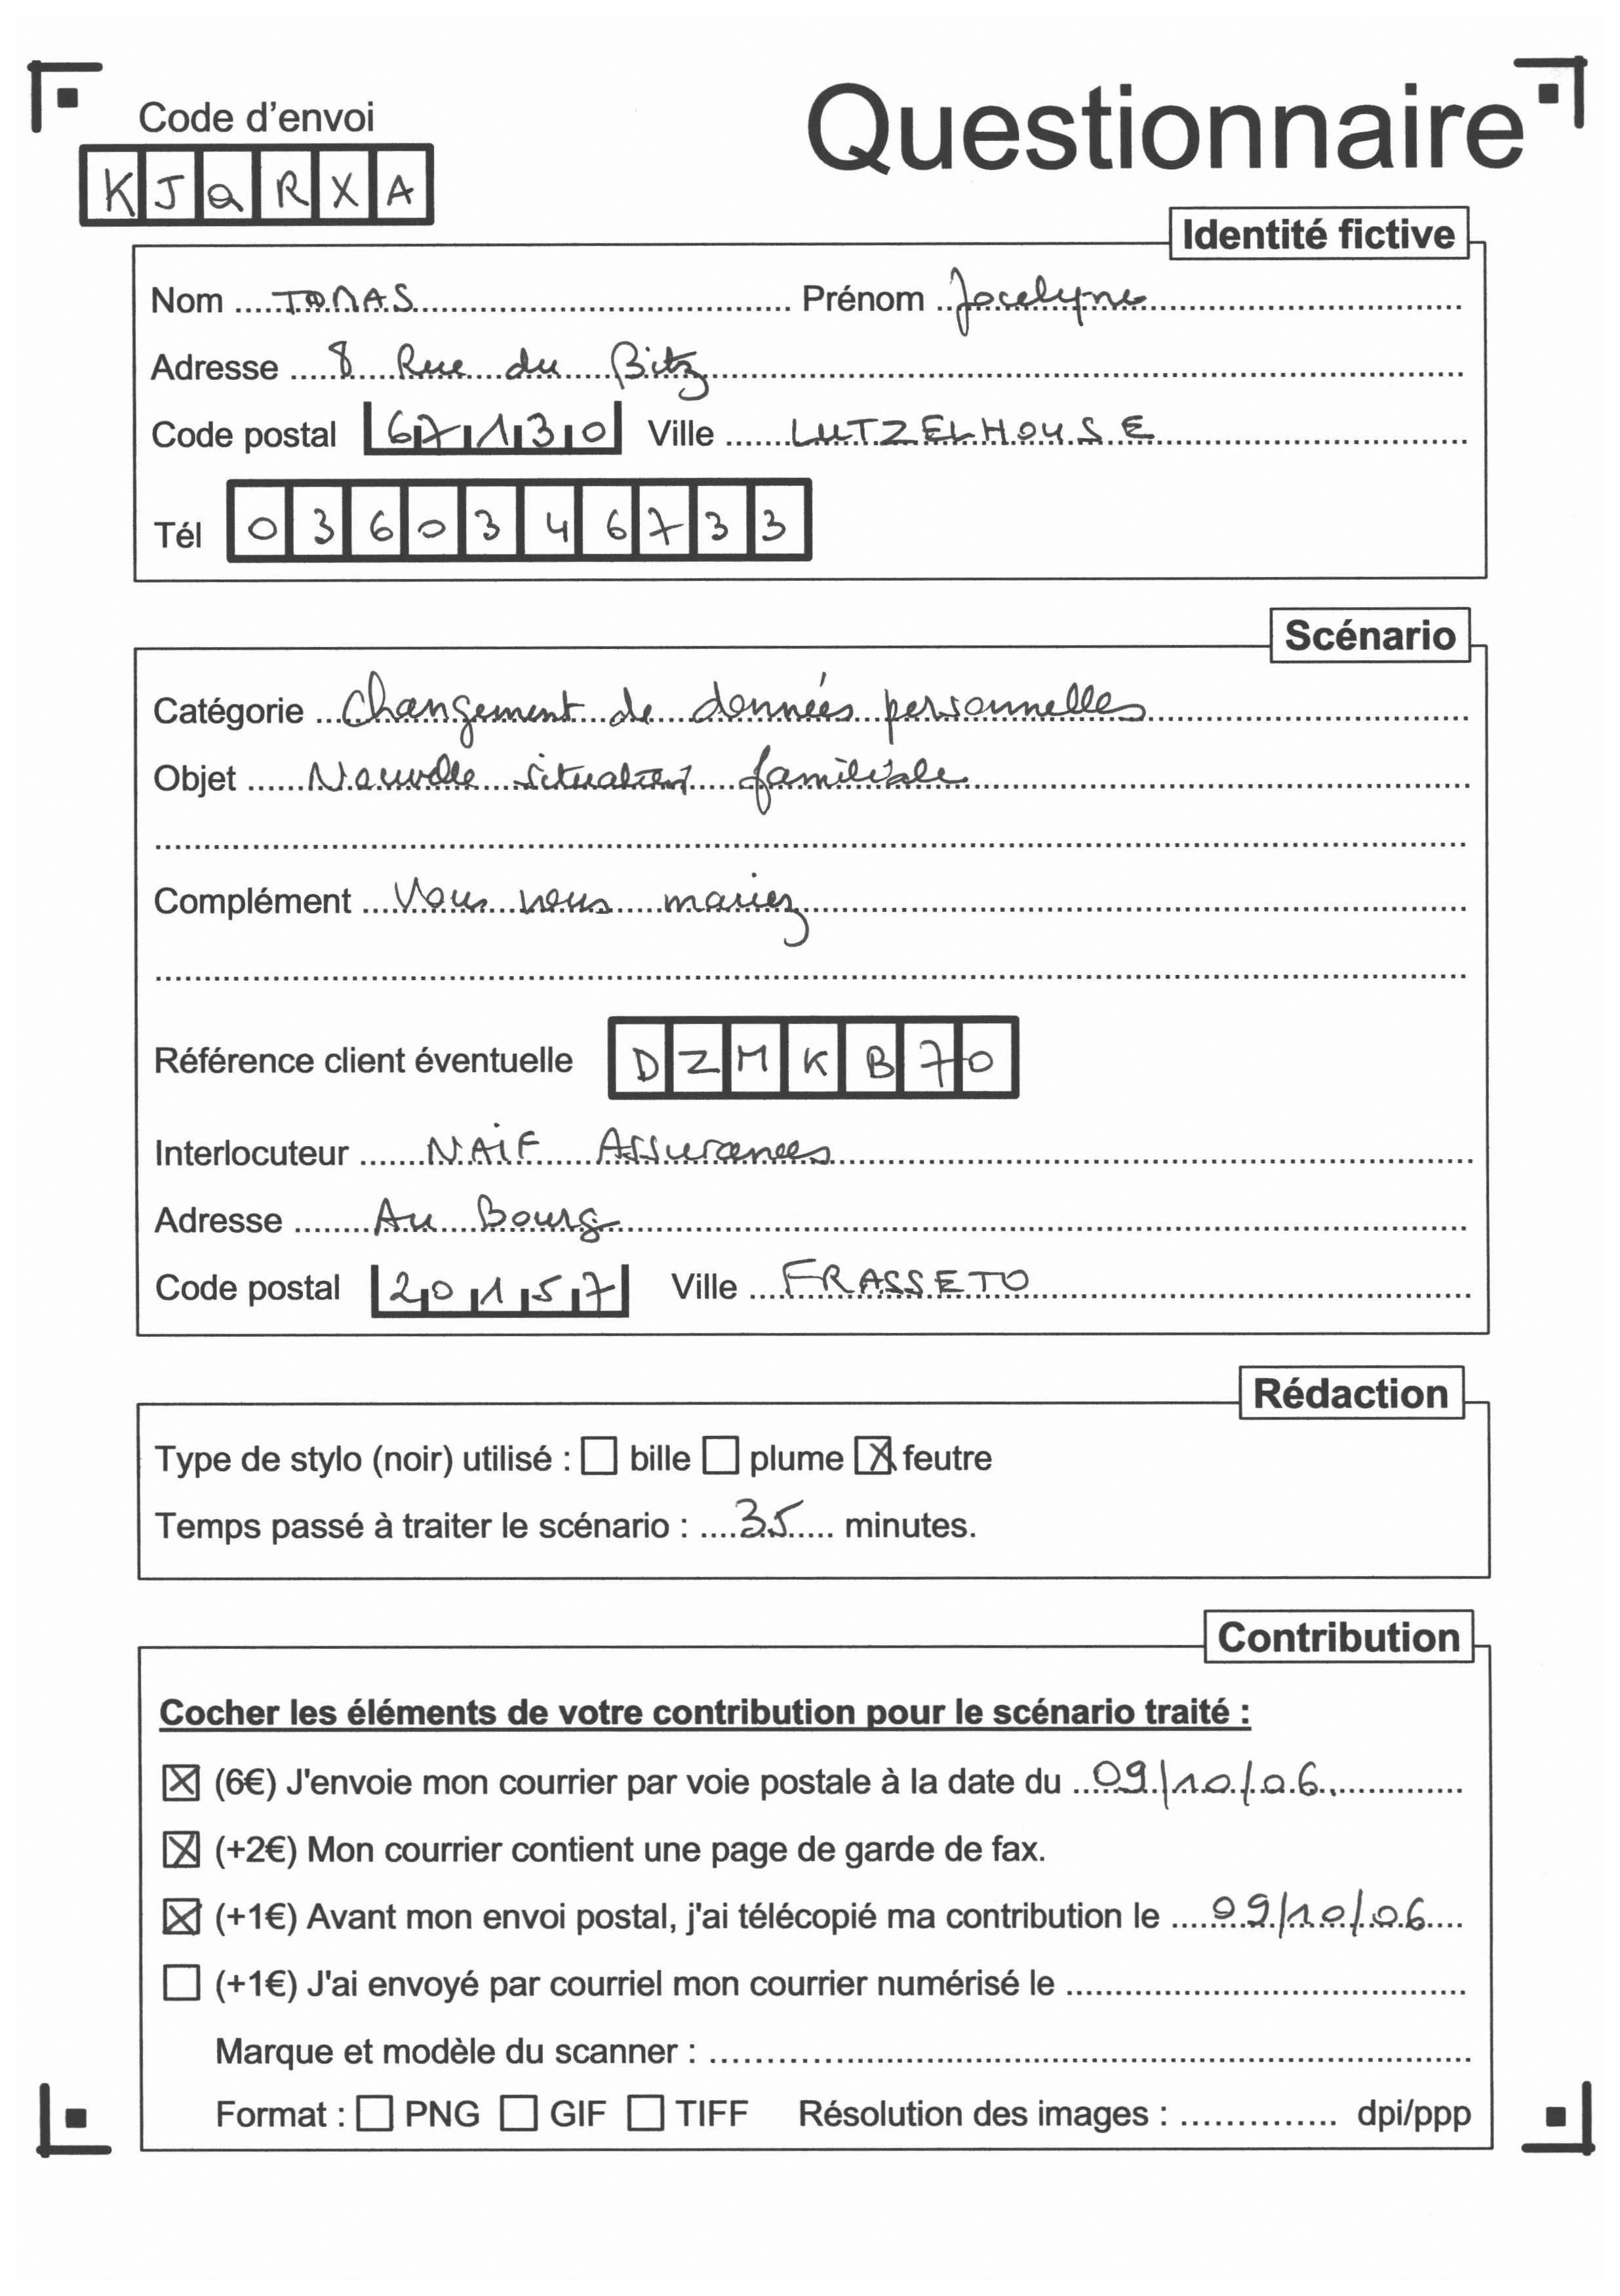 Code d'envoi
Questionnaire
KJQRXA
Identité fictive
Nom Prénom Jocelyne
Adresse 8 Rue du Bitz
Code postal 67130 Ville LUTZELHOUSE
Tél 0360346733
Scénario
Catégorie Changement de données personnelles
Objet Nouvelle situation familiale
Complément Vous vous mariez
Référence client éventuelle DZMKB70
Interlocuteur NAIF Assurances
Adresse Au Bourg
Code postal 20157 Ville FRASSETO
Rédaction
Type de stylo (noir) utilisé : ☐ bille ☐ plume ☒ feutre
Temps passé à traiter le scénario : 35 minutes.
Contribution
Cocher les éléments de votre contribution pour le scénario traité :
☒ (6€) J'envoie mon courrier par voie postale à la date du 09/10/06
☒ (+2€) Mon courrier contient une page de garde de fax.
☒ (+1€) Avant mon envoi postal, j'ai télécopié ma contribution le 09/10/06
☐ (+1€) J'ai envoyé par courriel mon courrier numérisé le
Marque et modèle du scanner :
Format : ☐ PNG ☐ GIF ☐ TIFF Résolution des images : dpi/ppp